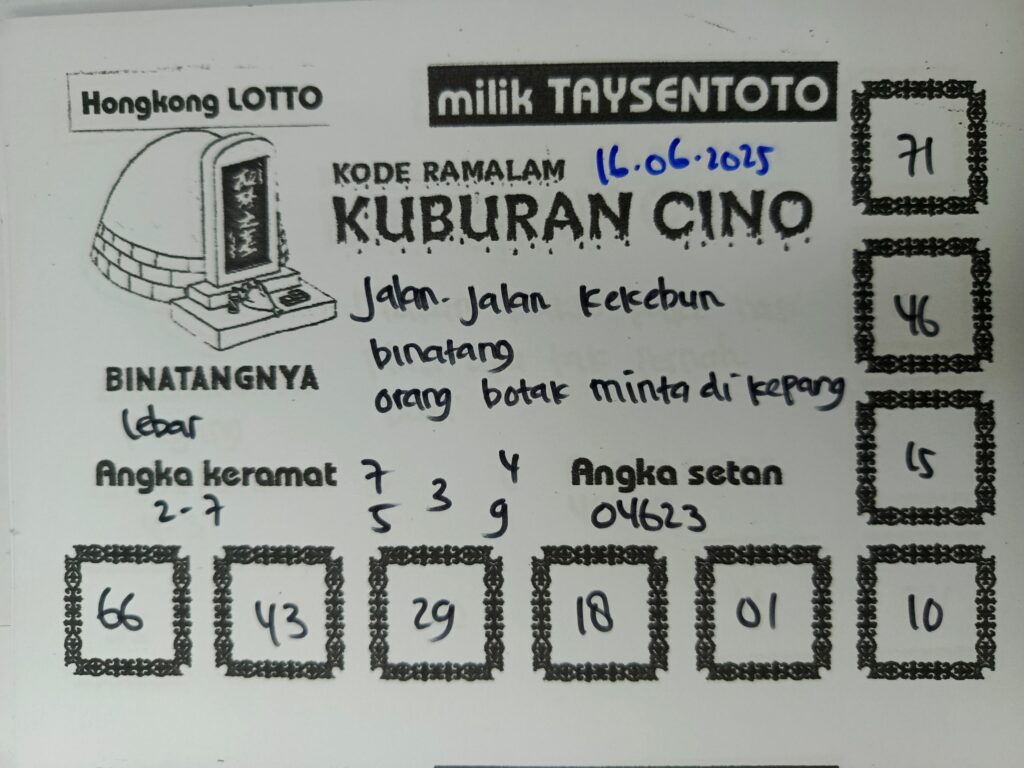 Hongkong LOTTO
milik TAYSENTOTO
KODE RAMALAM 16.06.2025
KUBURAN CINO
Jalan-Jalan kekebun
binatang
orang botak minta di kepang
BINATANGNYA
lebar
Angka keramat
2-7
7 4
3
5 9
Angka setan
04623
71
46
15
66 43 29 18 01 10